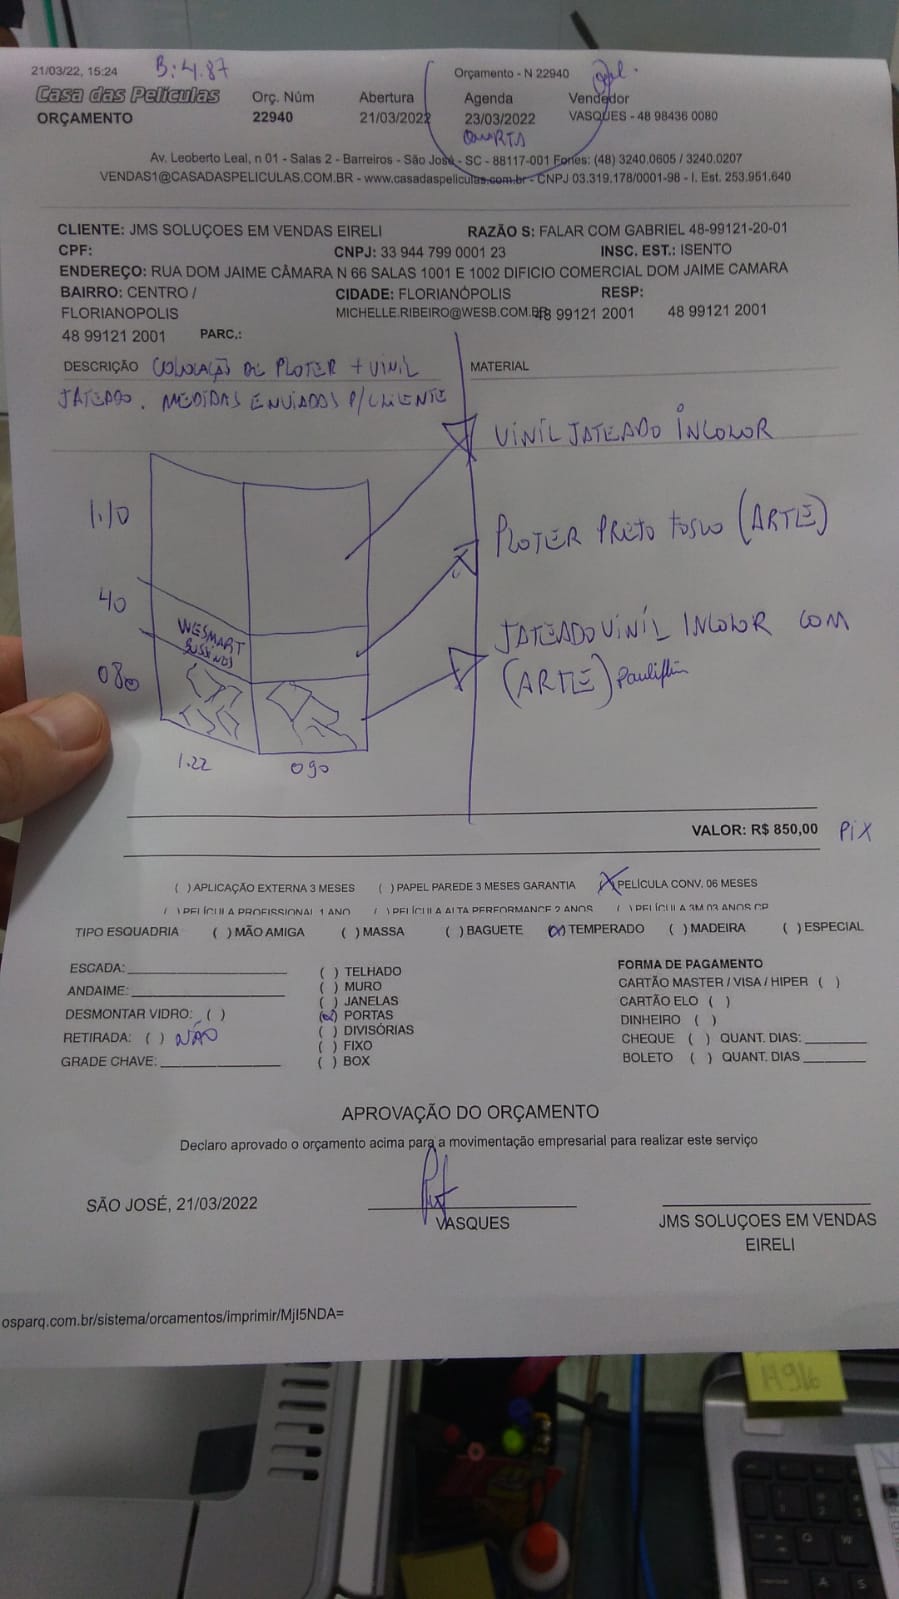 21/03/22, 15:24 B: 4.87 Orçamento - N 22940
Casa das Películas Orç. Núm Abertura Agenda Vendedor
ORÇAMENTO 22940 21/03/2022 23/03/2022 VASQUES - 48 98436 0080
QUARTA
Av. Leoberto Leal, n 01 - Salas 2 - Barreiros - São José - SC - 88117-001 Fones: (48) 3240.0605 / 3240.0207
VENDAS1@CASADASPELICULAS.COM.BR - www.casadaspeliculas.com.br - CNPJ 03.319.178/0001-98 - I. Est. 253.951.640
CLIENTE: JMS SOLUÇOES EM VENDAS EIRELI RAZÃO S: FALAR COM GABRIEL 48-99121-20-01
CPF: CNPJ: 33 944 799 0001 23 INSC. EST.: ISENTO
ENDEREÇO: RUA DOM JAIME CÂMARA N 66 SALAS 1001 E 1002 DIFICIO COMERCIAL DOM JAIME CAMARA
BAIRRO: CENTRO / CIDADE: FLORIANÓPOLIS RESP:
FLORIANOPOLIS MICHELLE.RIBEIRO@WESB.COM.BR 48 99121 2001 48 99121 2001
48 99121 2001 PARC.:
DESCRIÇÃO COLOCAÇÃO DE PLOTER + VINIL MATERIAL
JATEADO. MEDIDAS ENVIADAS P/CLIENTE
VINIL JATEADO INCOLOR
1.10
PLOTER PRETO FOSCO (ARTE)
40
WESMART
BUSSINDS
JATEADO VINIL INCOLOR COM
080
(ARTE)
1.22 090
VALOR: R$ 850,00 PIX
( ) APLICAÇÃO EXTERNA 3 MESES ( ) PAPEL PAREDE 3 MESES GARANTIA (X) PELÍCULA CONV. 06 MESES
( ) PELÍCULA PROFISSIONAL 1 ANO ( ) PELÍCULA ALTA PERFORMANCE 2 ANOS ( ) PELÍCULA 3M 03 ANOS CP
TIPO ESQUADRIA ( ) MÃO AMIGA ( ) MASSA ( ) BAGUETE (x) TEMPERADO ( ) MADEIRA ( ) ESPECIAL
ESCADA: ( ) TELHADO FORMA DE PAGAMENTO
ANDAIME: ( ) MURO CARTÃO MASTER / VISA / HIPER ( )
( ) JANELAS CARTÃO ELO ( )
DESMONTAR VIDRO: ( ) (x) PORTAS DINHEIRO ( )
RETIRADA: ( ) NÃO ( ) DIVISÓRIAS CHEQUE ( ) QUANT. DIAS:
( ) FIXO
GRADE CHAVE: ( ) BOX BOLETO ( ) QUANT. DIAS
APROVAÇÃO DO ORÇAMENTO
Declaro aprovado o orçamento acima para a movimentação empresarial para realizar este serviço
SÃO JOSÉ, 21/03/2022
VASQUES JMS SOLUÇOES EM VENDAS
EIRELI
osparq.com.br/sistema/orcamentos/imprimir/MjI5NDA=